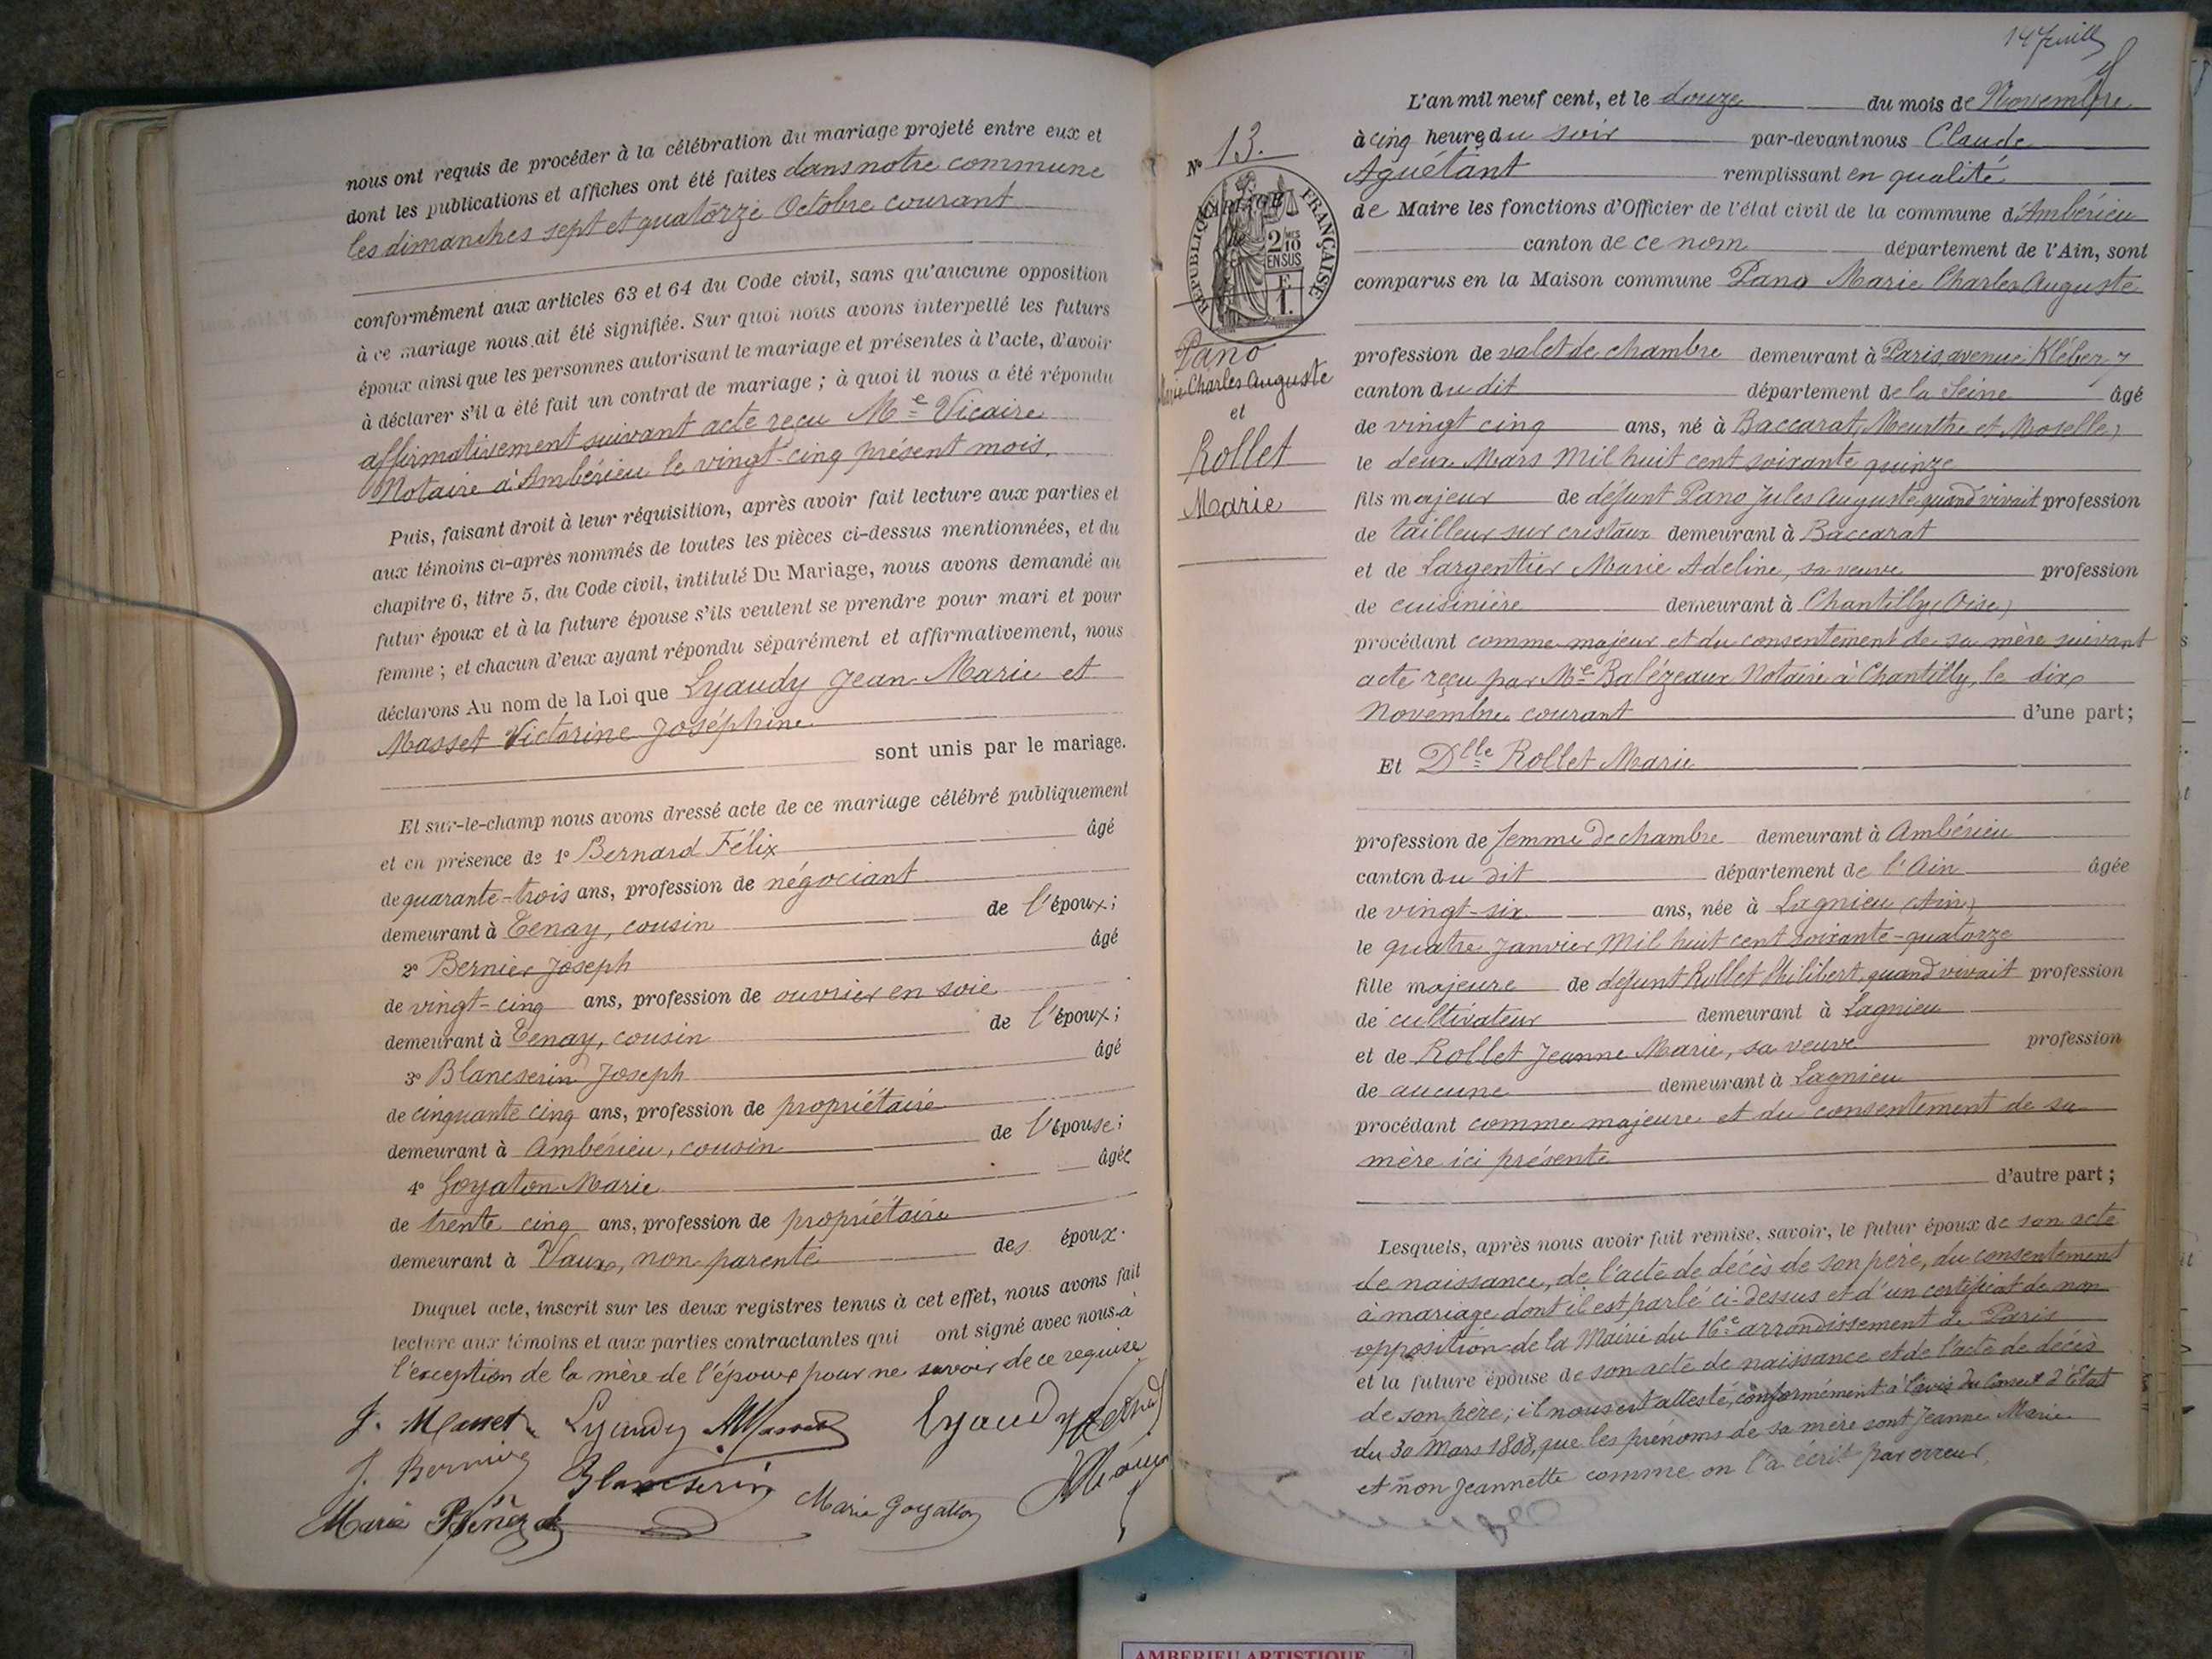 nous ont requis de procéder à la célébration du mariage projeté entre eux et
dont les publications et affiches ont été faites dans notre commune
les dimanches sept et quatorze Octobre courant
conformément aux articles 63 et 64 du Code civil, sans qu'aucune opposition
à ce mariage nous ait été signifiée. Sur quoi nous avons interpellé les futurs
époux ainsi que les personnes autorisant le mariage et présentes à l'acte, d'avoir
à déclarer s'il a été fait un contrat de mariage ; à quoi il nous a été répondu
affirmativement suivant acte reçu Me Vicaire
Notaire à Ambérieu le vingt-cinq présent mois.
Puis, faisant droit à leur réquisition, après avoir fait lecture aux parties et
aux témoins ci-après nommés de toutes les pièces ci-dessus mentionnées, et du
chapitre 6, titre 5, du Code civil, intitulé Du Mariage, nous avons demandé au
futur époux et à la future épouse s'ils veulent se prendre pour mari et pour
femme ; et chacun d'eux ayant répondu séparément et affirmativement, nous
déclarons Au nom de la Loi que Lyaudy Jean-Marie et
Masset Victorine Joséphine
sont unis par le mariage.
Et sur-le-champ nous avons dressé acte de ce mariage célébré publiquement
et en présence de 1° Bernard Félix âgé
de quarante-trois ans, profession de négociant
demeurant à Tenay, cousin de l'époux;
2° Bernier Joseph âgé
de vingt-cinq ans, profession de ouvrier en soie
demeurant à Tenay, cousin de l'époux;
3° Blancserin Joseph âgé
de cinquante cinq ans, profession de propriétaire
demeurant à Ambérieu, cousin de l'épouse;
4° Goyaton Marie âgée
de trente cinq ans, profession de propriétaire
demeurant à Vaux, non parente des époux.
Duquel acte, inscrit sur les deux registres tenus à cet effet, nous avons fait
lecture aux témoins et aux parties contractantes qui ont signé avec nous à
l'exception de la mère de l'époux pour ne savoir de ce requise
J. Masset Lyaudy Masset Lyaudy
J. Bernier Blancserin Marie Goyatton
Marie
14 Feuille
N° 13.
RÉPUBLIQUE FRANÇAISE
2/10 EN SUS
Pano
Marie Charles Auguste
et
Rollet
Marie
L'an mil neuf cent, et le douze du mois de Novembre
à cinq heures du soir par-devant nous Claude
Aguétant remplissant en qualité
de Maire les fonctions d'Officier de l'état civil de la commune d'Ambérieu
canton de ce nom département de l'Ain, sont
comparus en la Maison commune Pano Marie Charles Auguste
profession de valet de chambre demeurant à Paris, avenue Kléber, 7
canton du dit département de la Seine âgé
de vingt cinq ans, né à Baccarat (Meurthe et Moselle)
le deux Mars Mil huit cent soixante quinze
fils majeur de défunt Pano Jules Auguste quand vivait profession
de tailleur sur cristaux demeurant à Baccarat
et de Largentier Marie Adeline, sa veuve profession
de cuisinière demeurant à Chantilly (Oise)
procédant comme majeur et du consentement de sa mère suivant
acte reçu par Me Balézeaux Notaire à Chantilly, le dix
Novembre courant d'une part;
Et Dlle Rollet Marie
profession de femme de chambre demeurant à Ambérieu
canton du dit département de l'Ain âgée
de vingt-six ans, née à Lagnieu (Ain)
le quatre Janvier Mil huit cent soixante-quatorze
fille majeure de défunt Rollet Philibert, quand vivait profession
de cultivateur demeurant à Lagnieu
et de Rollet Jeanne Marie, sa veuve profession
de aucune demeurant à Lagnieu
procédant comme majeure et du consentement de sa
mère ici présente
d'autre part ;
Lesquels, après nous avoir fait remise, savoir, le futur époux de son acte
de naissance, de l'acte de décès de son père, du consentement
à mariage dont il est parlé ci-dessus et d'un certificat de non
opposition de la Mairie du 16e arrondissement de Paris
et la future épouse de son acte de naissance et de l'acte de décès
de son père; il nous est attesté, conformément à l'avis du Conseil d'Etat
du 30 Mars 1808, que les prénoms de sa mère sont Jeanne Marie
et non Jeannette comme on l'a écrit par erreur.
AMBERIEU ARTISTIQUE